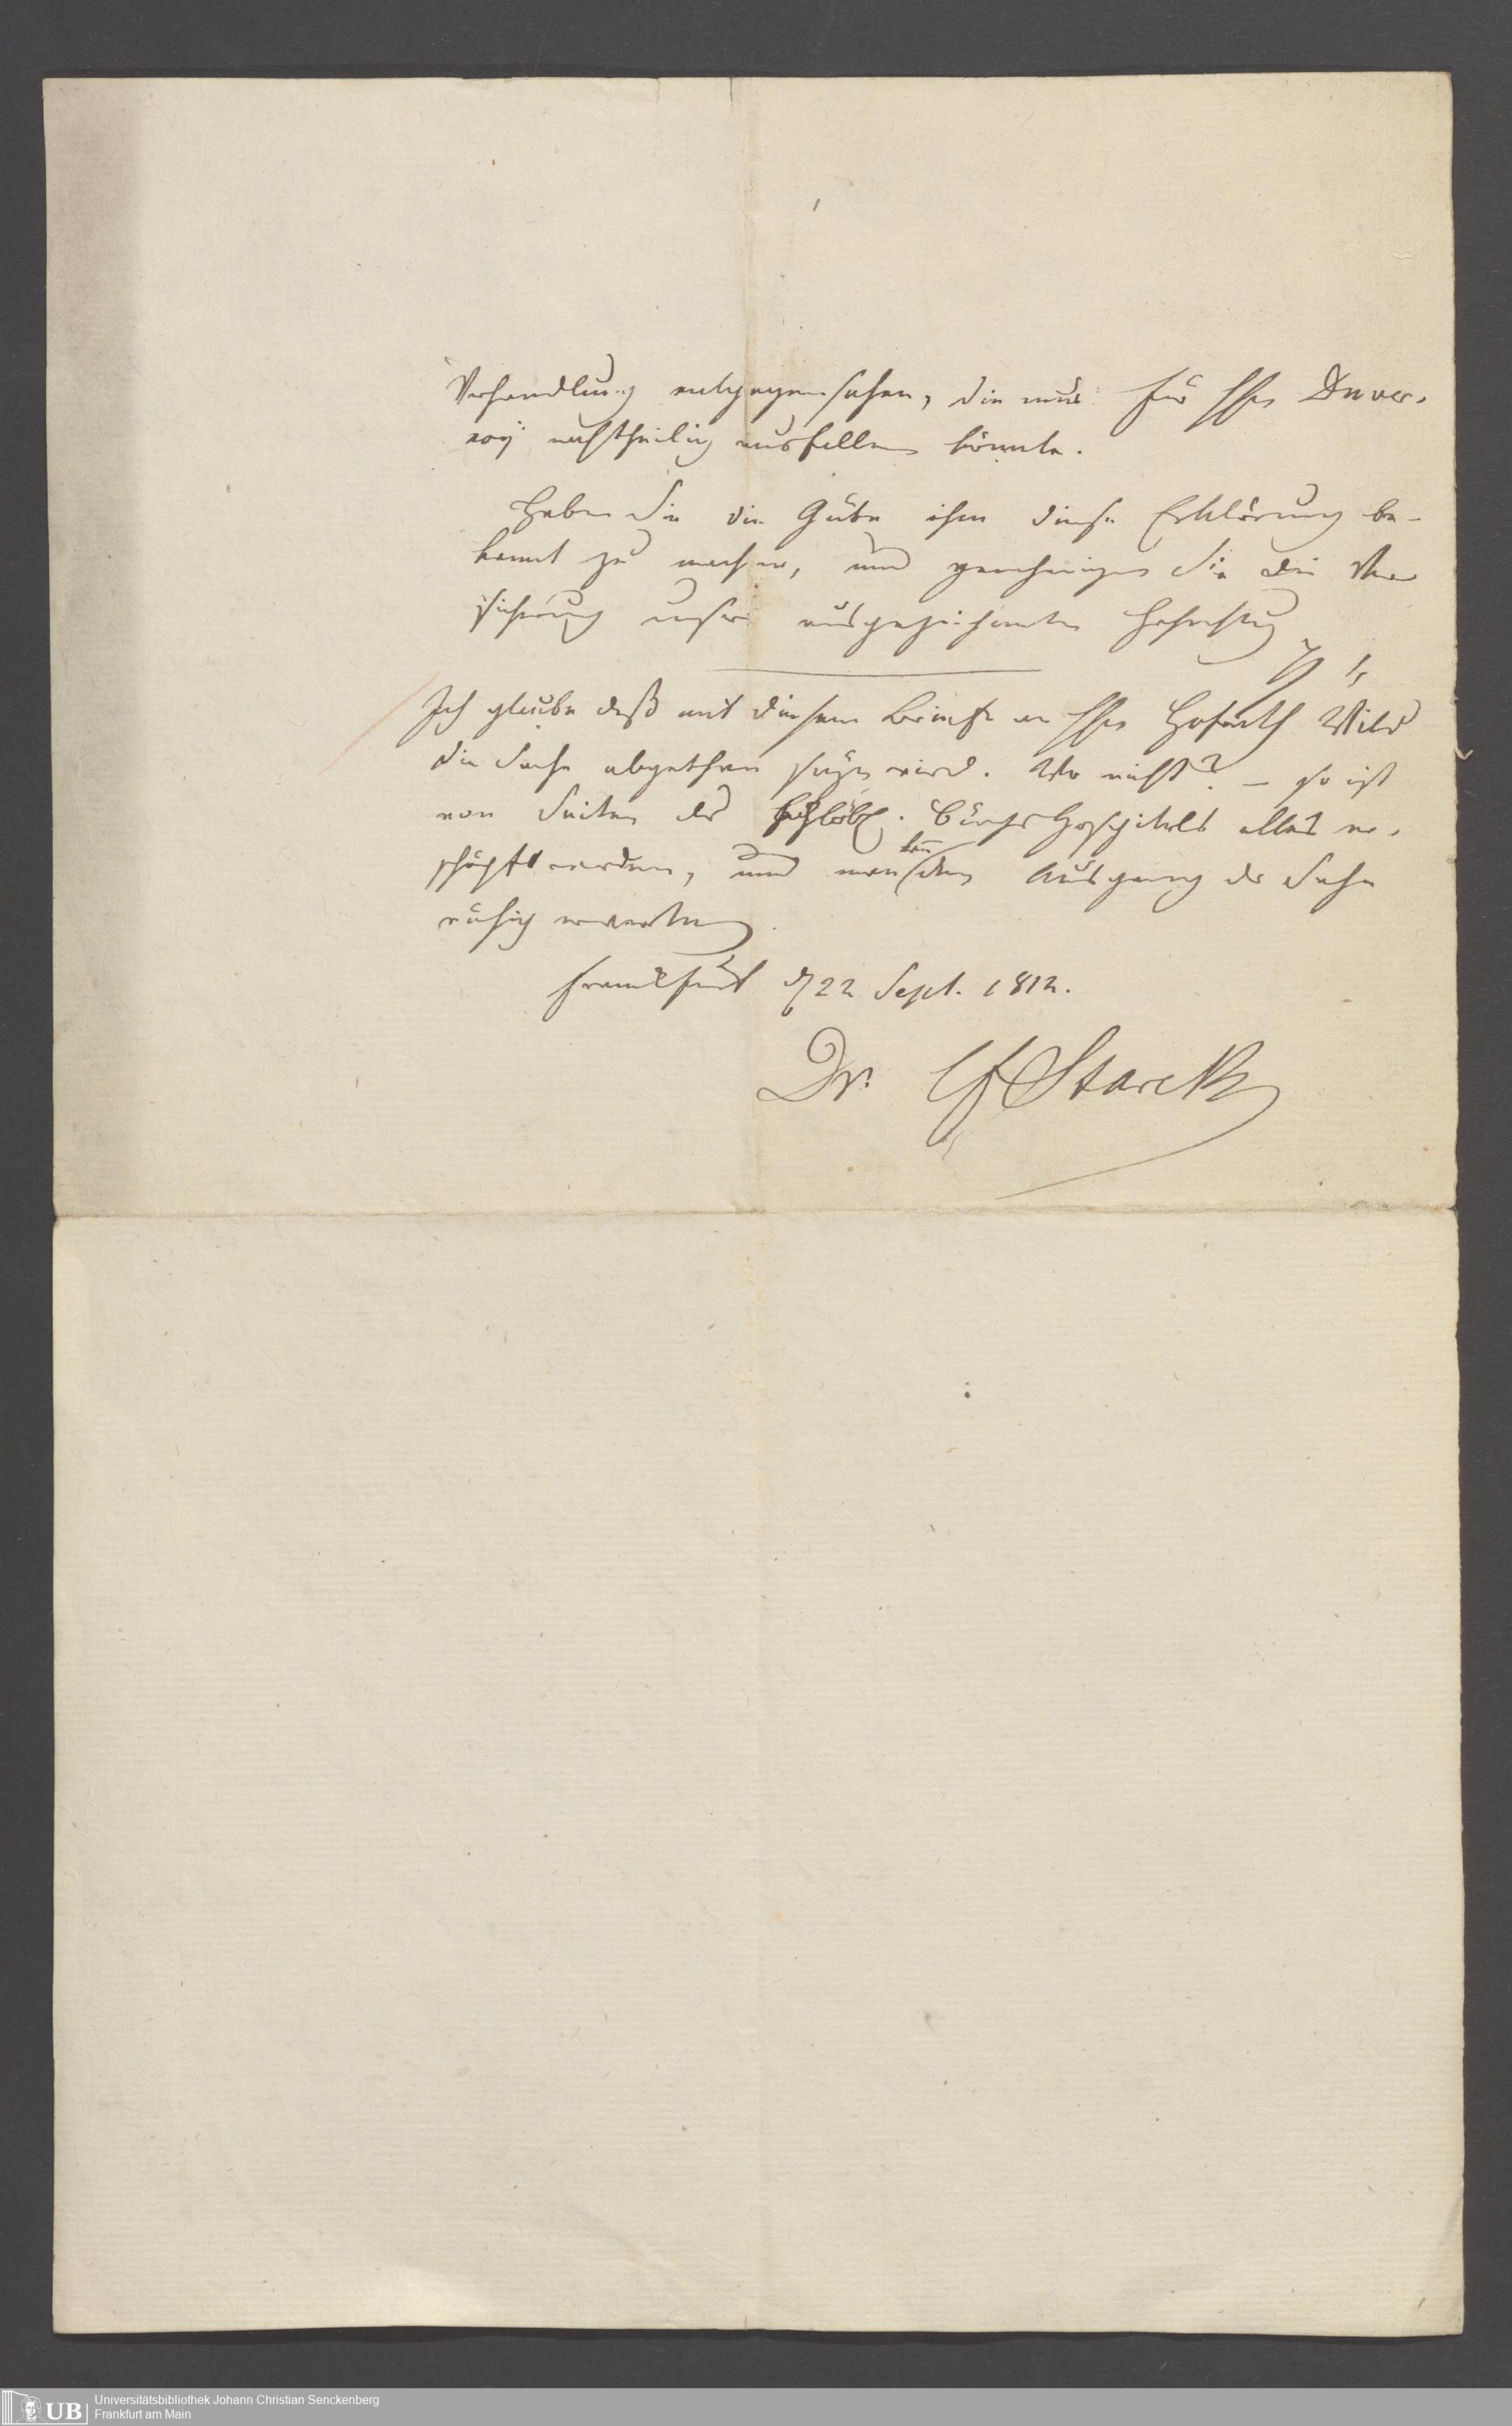 Verhandlung entgegensehen, die nur für HEr Duver-
noÿ nachtheilig ausfallen könnte.
Haben Sie die Güte ihm diese Erklärung be-
kannt zu machen, und genehmigen Sie die Ver
sicherung unsrer ausgezeichneten Hochachtung
Ich glaube daß mit diesem Briefe an HEr Hofrath Wild
die Sache abgethan seÿn wird. Wo nicht? – so ist
von Seiten des hochlöbl. Bürger Hospitals alles er-
schöpft worden, und man kann den Ausgang der Sache
ruhig erwarten.
Frankfurt d 22 Sept. 1812.
Dr. CF Starck
UB
Universitätsbibliothek Johann Christian Senckenberg
Frankfurt am Main